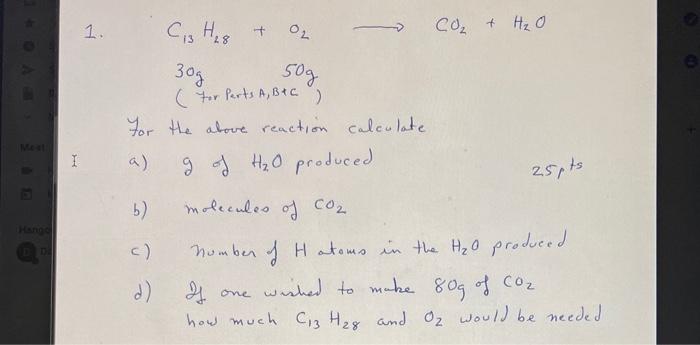 1. C13 H28 + O2 ⟶ CO2 + H2O
30g 50g
( For Parts A, B & C )
For the above reaction calculate
a) g of H2O produced
25pts
b) molecules of CO2
c) number of H atoms in the H2O produced
d) If one wished to make 80g of CO2
how much C13 H28 and O2 would be needed
Meet